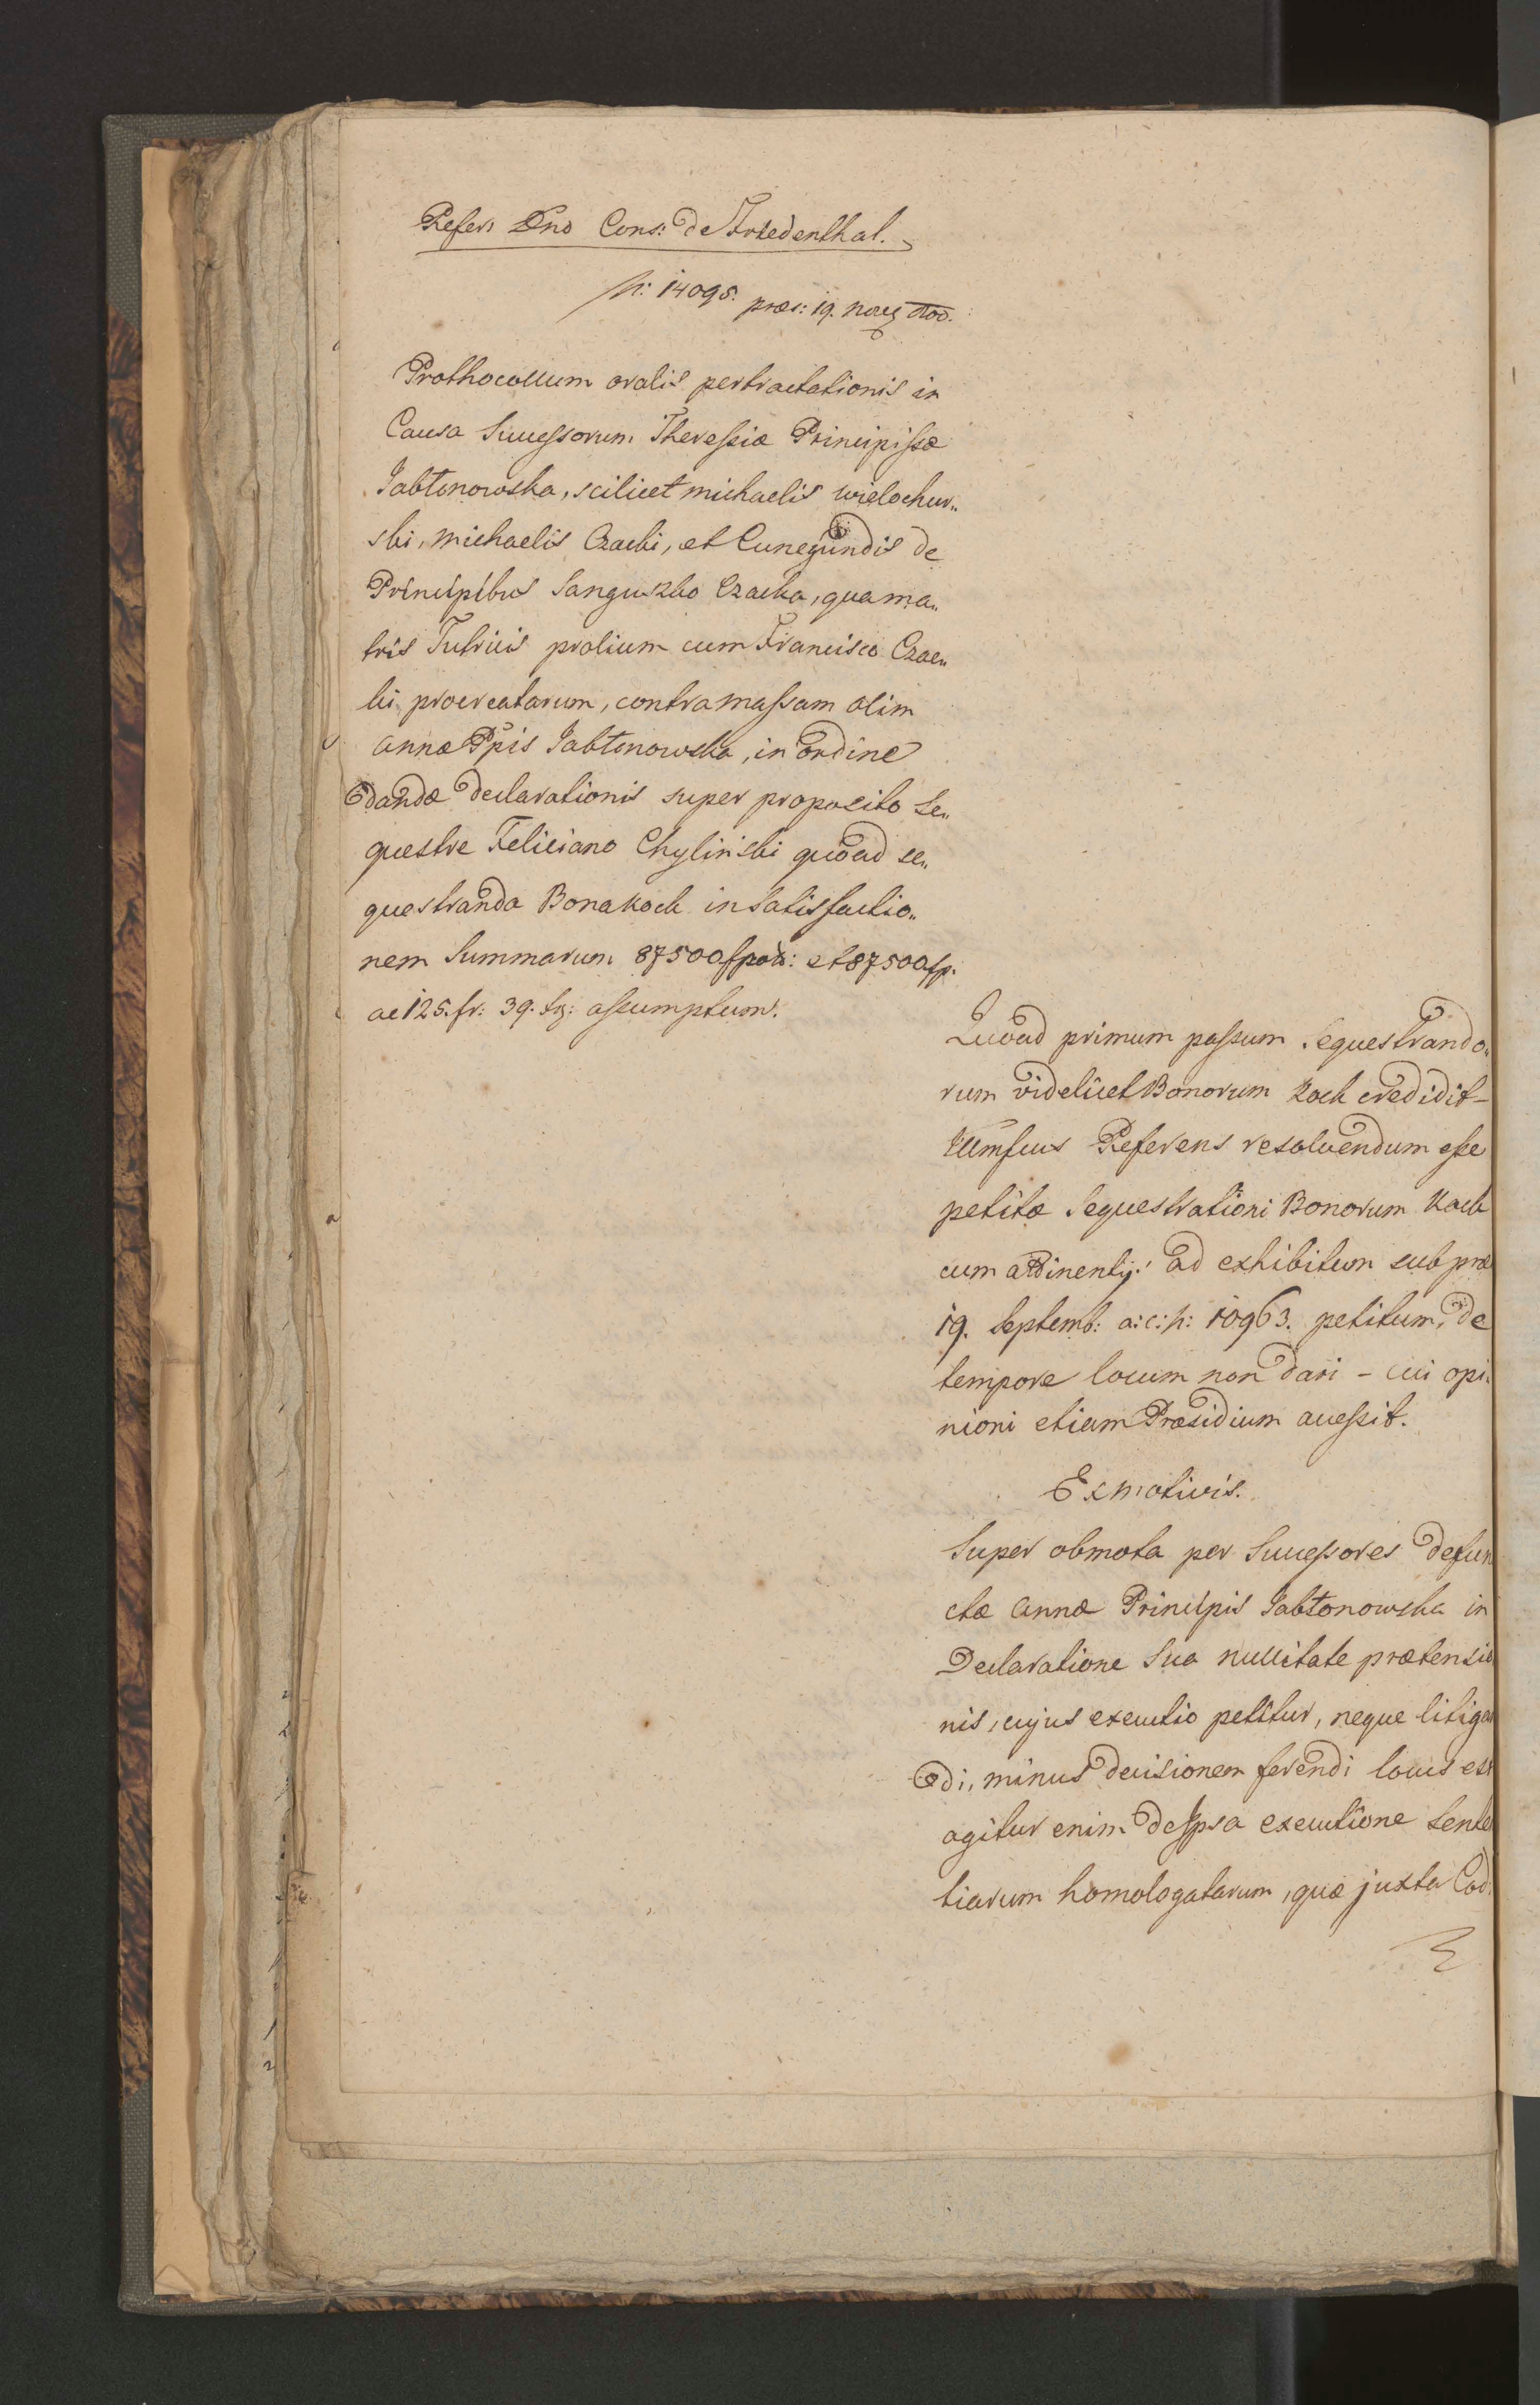 Refers Dno Cons: de Friedenthal.
N: 14095. præs: 19. 800.
Prothocollum oralis pertractationis in
Causa Successorum Theressiæ Principissæ
Jabłonowska, scilicet Michaelis Wielochur„
ski, Michaelis Czacki, et Cunegundis de
Principibus Sanguszko Czacka, qua ma„
tris Tutricis prolium cum Francisco Czac„
ki procreatarum, contra massam olim
Annæ Ppis Jabłonowska, in ordine
dandæ declarationis super proposito Se„
questre Feliciano Chylinski quoad se„
questranda Bona Kock in satisfactio„
nem Summarum 87500 fpol: et 87500 fp.
ac 125. fr: 39. xg: assumptum.
Quoad primum passum Sequestrando„
rum videlicet Bonorum Kock credidit
Illmsus Referens resolvendum esse
petitæ Sequestrationi Bonorum Kock
cum attinentijs ad exhibitum sub præs
19. Septemb: a: c: N: 10963. petitum, de
tempore locum non dari – cui opi„
nioni etiam Præsidium accessit.
Ex motivis.
Super obmota per Successores defun
ctæ Annæ Principis Jabłonowska in
Declaratione Sua nullitate prætensio
nis, cujus executio petitur, neque litigan
di, minus decisionem ferendi locus est
agitur enim de ipsa executione Senten
tiarum homologatarum, quæ juxta Cod: